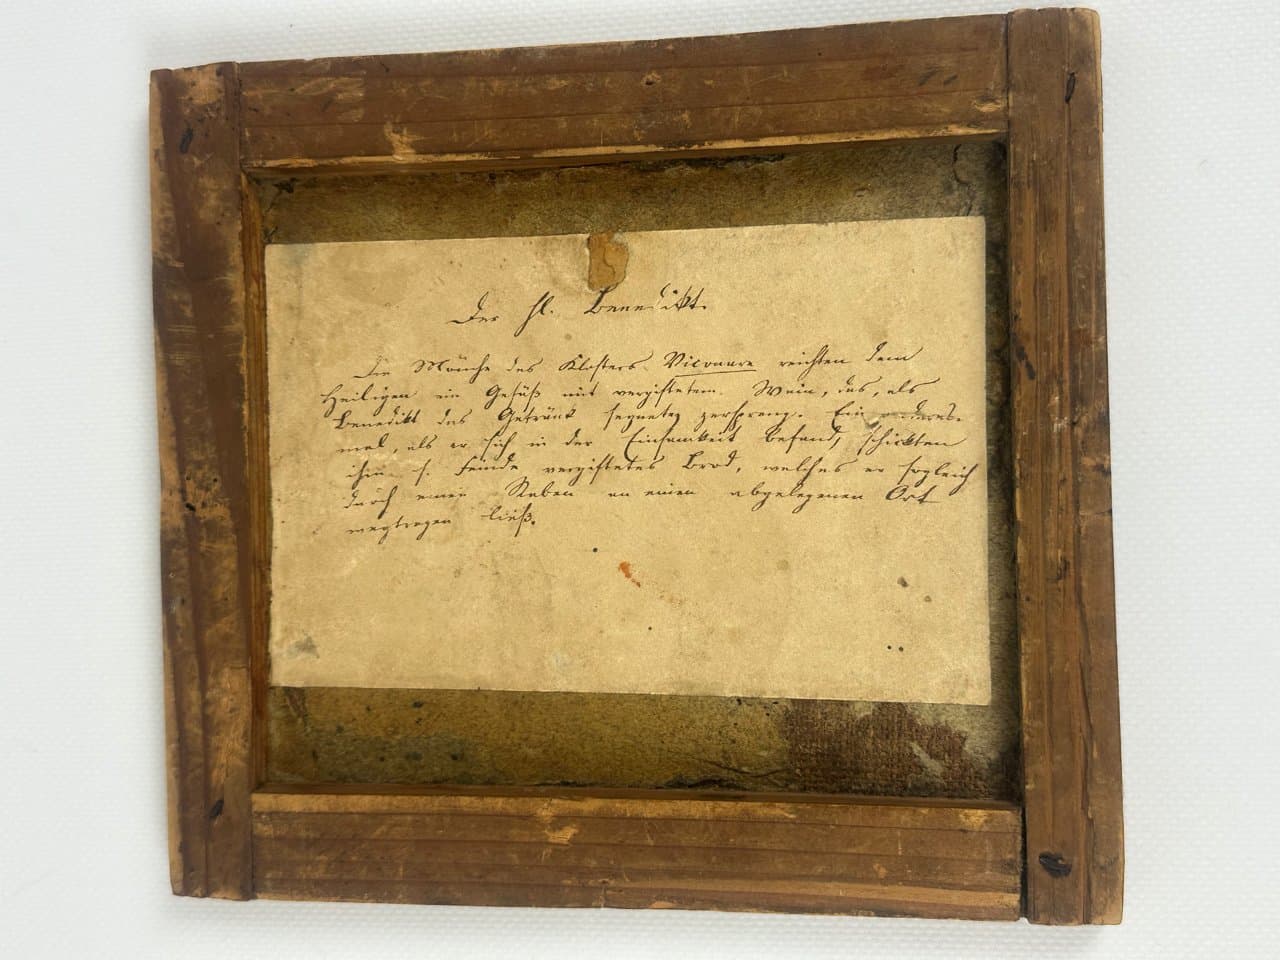 Der hl. Benedikt.
Die Mönche des Klosters Vicovare reichten dem
Heiligen ein Gefäß mit vergiftetem Wein, das, als
Benedikt das Getränk segnete, zersprang. Ein anderes-
mal, als er sich in der Einsamkeit befand, schickten
ihm s. Feinde vergiftetes Brod, welches er sogleich
durch einen Raben an einen abgelegenen Ort
wegtragen ließ.